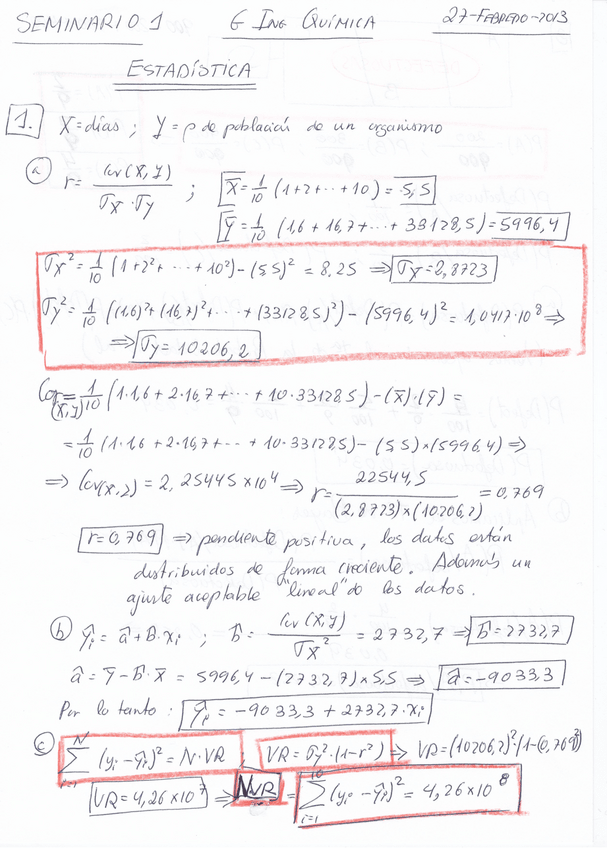 SEMINARIO 1 G ING QUÍMICA 27-FEBRERO-2013
ESTADÍSTICA
1. X=días ; Y=ρ de población de un organismo
a) r = Cov(X,Y) / (σx · σy) ; X̄ = 1/10 (1+2+···+10) = 5,5
Ȳ = 1/10 (1,6 + 16,7 + ··· + 33128,5) = 5996,4
σx² = 1/10 (1+2²+ ··· +10²) - (5,5)² = 8,25 ⇒ σx = 2,8723
σy² = 1/10 ((1,6)² + (16,7)² + ··· + (33128,5)²) - (5996,4)² = 1,0417·10⁸ ⇒
⇒ σy = 10206,2
Cov(X,Y) = 1/10 (1·1,6 + 2·16,7 + ··· + 10·33128,5) - (x̄)·(ȳ) =
= 1/10 (1·1,6 + 2·16,7 + ··· + 10·33128,5) - (5,5)×(5996,4) ⇒
⇒ Cov(x,2) = 2,25445×10⁴ ⇒ r = 22544,5 / ((2,8723)×(10206,2)) = 0,769
r = 0,769 ⇒ pendiente positiva, los datos están
distribuidos de forma creciente. Además un
ajuste aceptable "lineal" de los datos.
b) ŷi = â + B·xi ; b̂ = Cov(X,Y) / σx² = 2732,7 ⇒ b̂ = 2732,7
â = ȳ - b̂·x̄ = 5996,4 - (2732,7)×5,5 ⇒ â = -9033,3
Por lo tanto : ŷi = -9033,3 + 2732,7·xi
c) N Σ i=1 (yi - ŷi)² = N·VR, VR = σy²·(1-r²) ⇒ VR = (10206,2)²·(1-(0,769)²)
VR = 4,26×10⁷ ⇒ NVR = 10 Σ i=1 (yi - ŷi)² = 4,26×10⁸